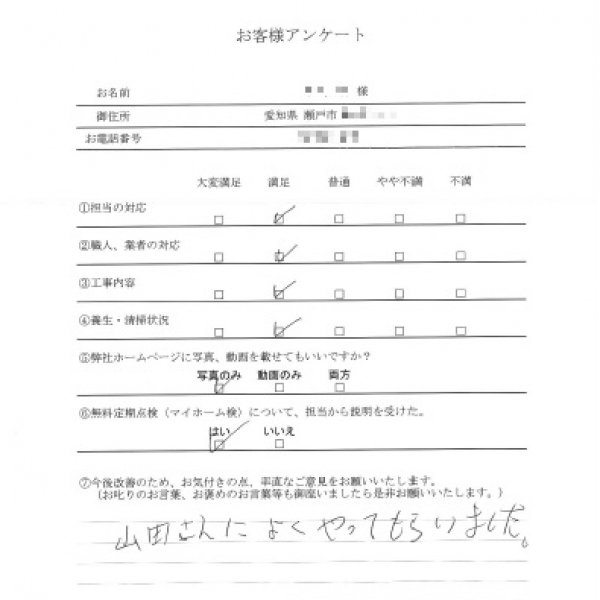 お客様アンケート
お名前 様
御住所 愛知県 瀬戸市
お電話番号
大変満足 満足 普通 やや不満 不満
①担当の対応 □ ☑ □ □ □
②職人、業者の対応 □ ☑ □ □ □
③工事内容 □ ☑ □ □ □
④養生・清掃状況 □ ☑ □ □ □
⑤弊社ホームページに写真、動画を載せてもいいですか？
写真のみ 動画のみ 両方
☑ □ □
⑥無料定期点検（マイホーム検）について、担当から説明を受けた。
はい いいえ
☑ □
⑦今後改善のため、お気付きの点、率直なご意見をお願いいたします。
（お叱りのお言葉、お褒めのお言葉等も御座いましたら是非お願いいたします。）
山田さんによくやってもらいました。